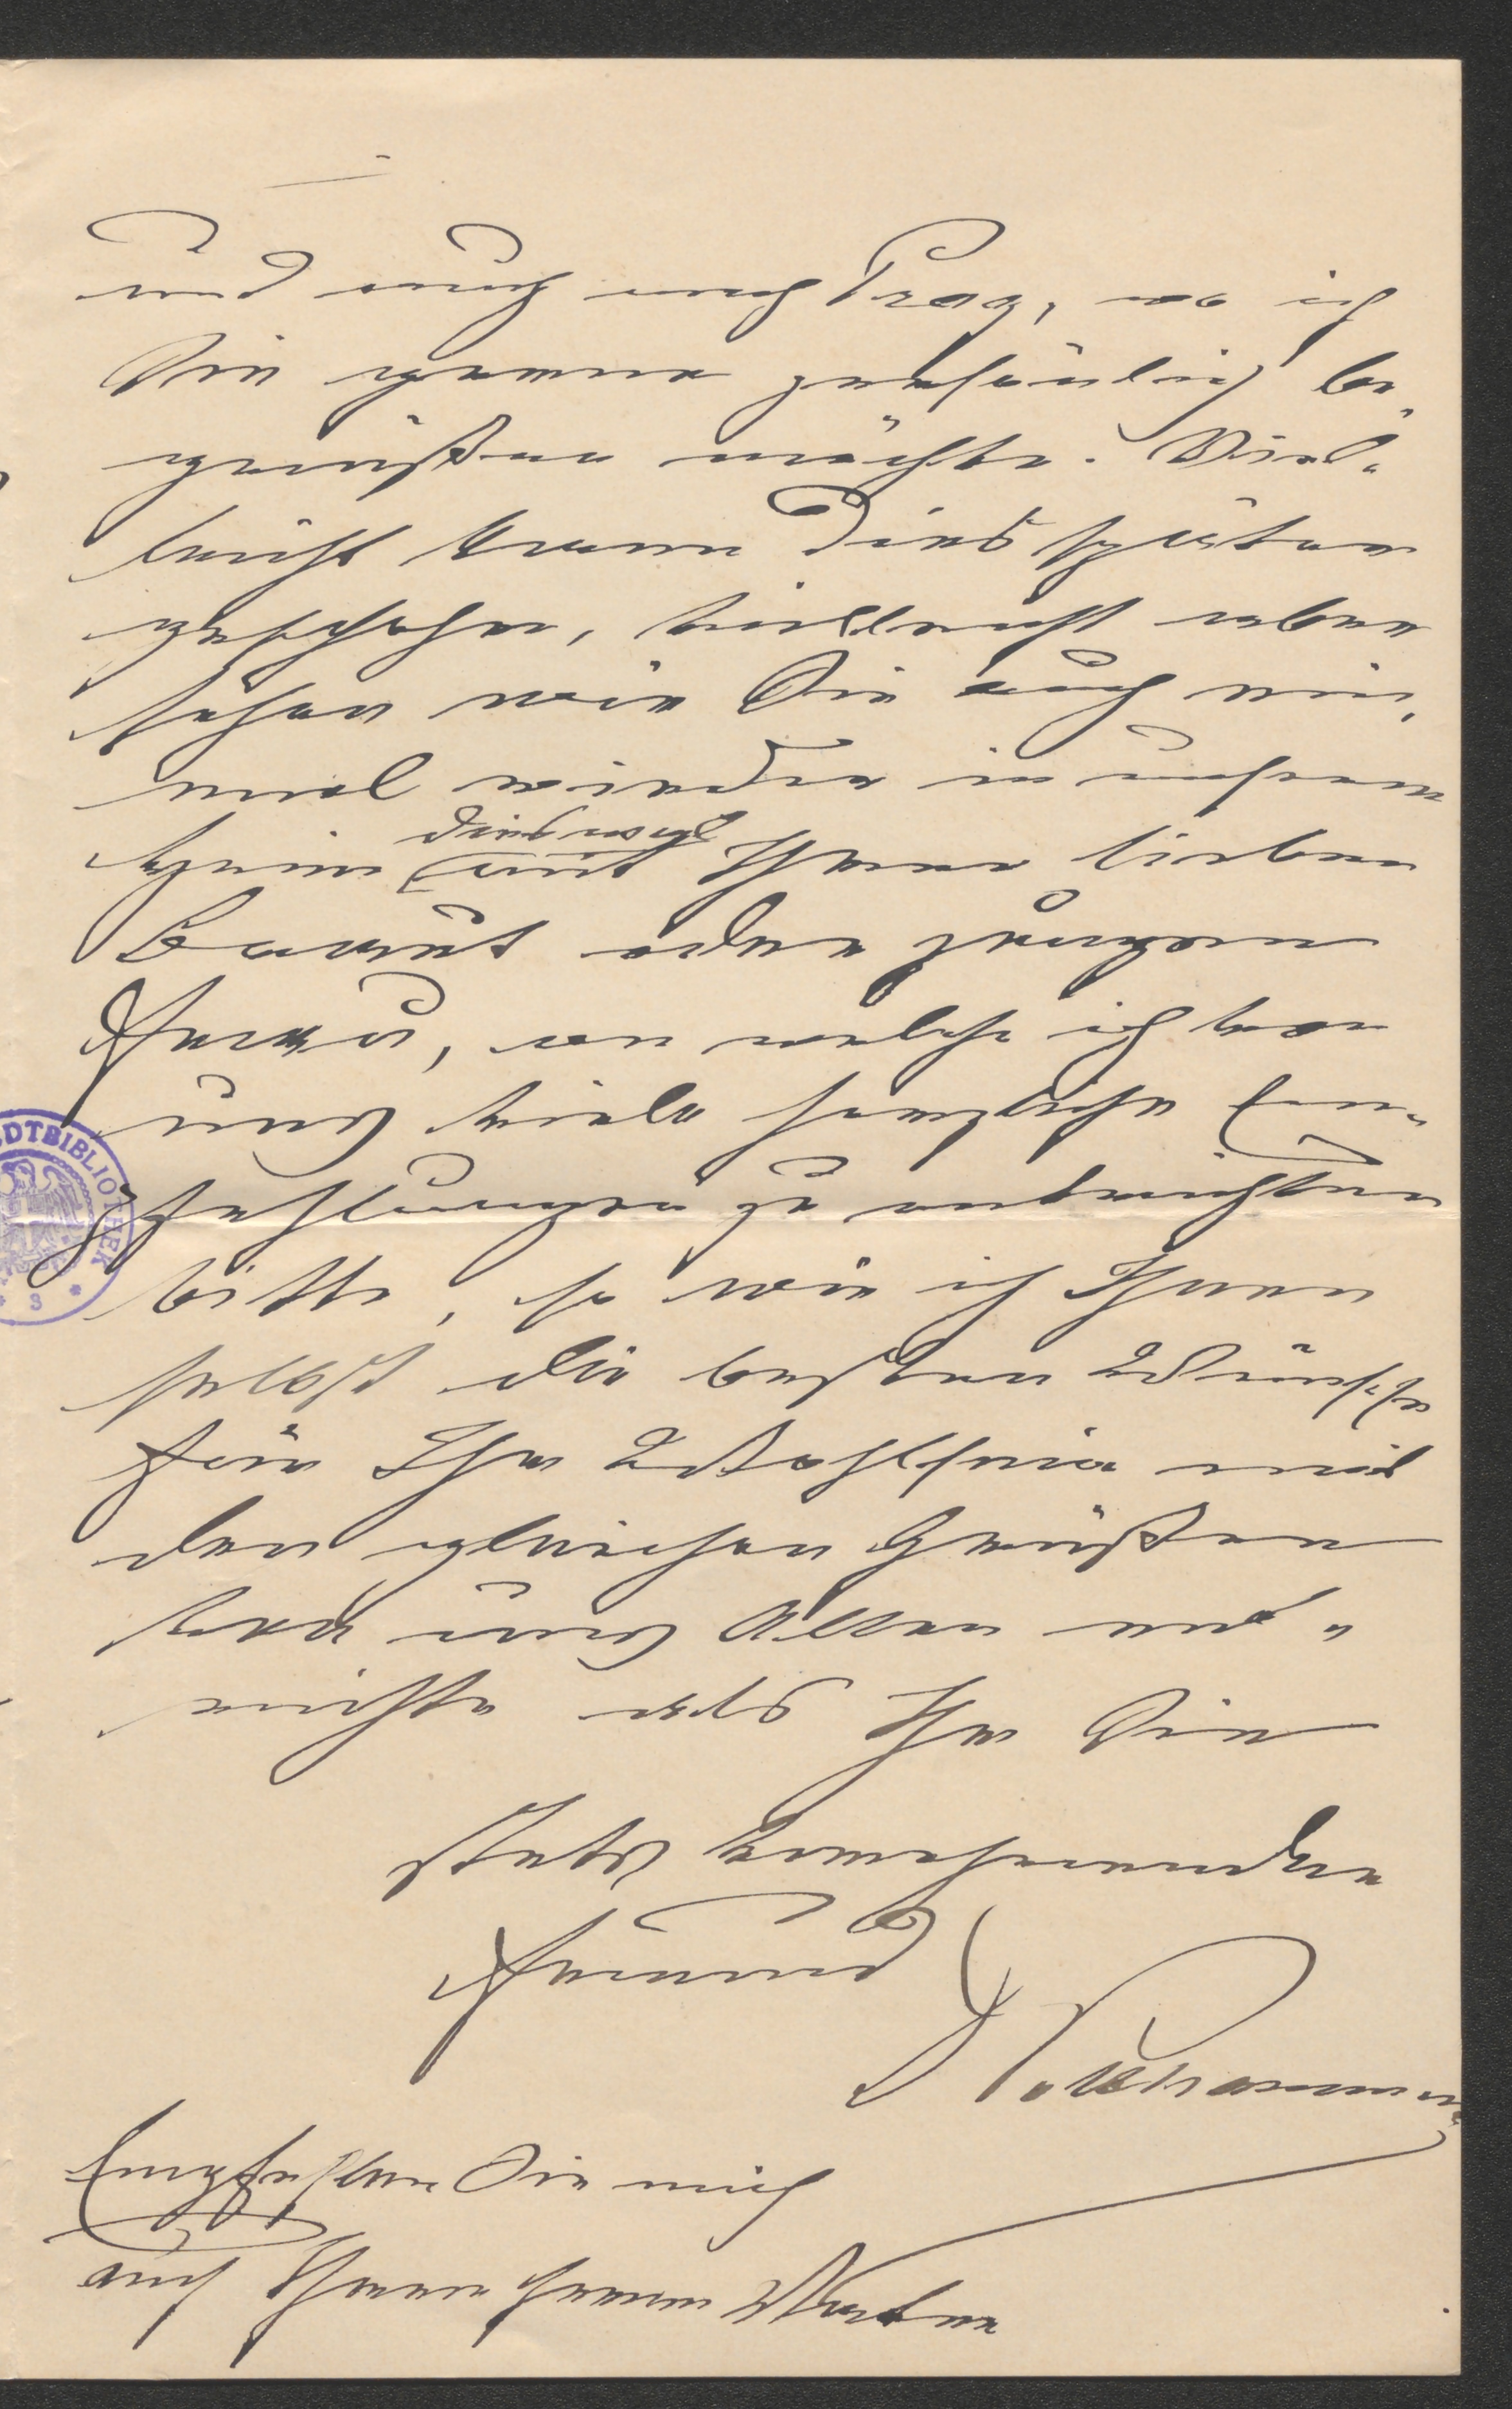 und auch nach Prag, wo ich
Sie gerne persönlich be-
grüßen möchte. Viel-
leicht kann dies später
geschehen, vielleicht aber
sehen wir Sie auch ein-
mal wieder in unserem
Heim diesmal mit Ihrer lieben
Braut oder jungen
Frau, an welche ich von
uns viele herzliche Em-
pfehlungen zu entrichten
bitte, so wie ich Ihnen
selbst die besten Wünsche
für Ihr Wohlsein mit
den gleichen Grüßen
von uns Allen ent-
richte als Ihr Sie
stets verehrender
Freund
Empfehlen Sie mich
auch Ihrem Herrn Vater
STADTBIBLIOTHEK
* 3 *